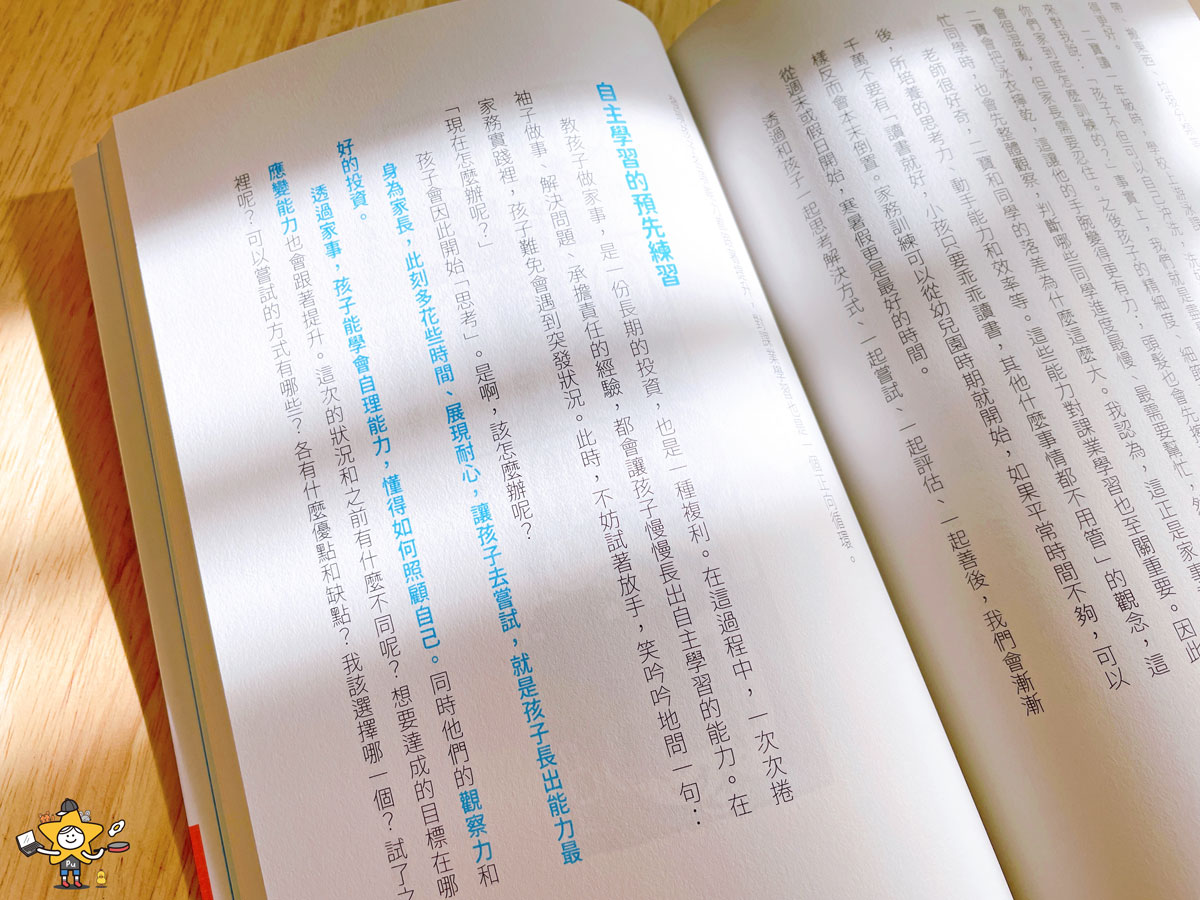 得更好。
二寶讀一年級時，學校上游泳課，
來對我說：「孩子不但可以自己沖洗，
你們家到底怎麼訓練的？」事實上，我們就是
會很混亂，但家長需要忍住。之後孩子的精細度、
二寶會把泳衣擰乾，這讓他的手腕變得更有力；頭髮也會先
忙同學時，也會先整體觀察，判斷哪些同學進度最慢、最需要幫忙，
老師很好奇，二寶和同學的落差為什麼這麼大。我認為，這正是家事
後，所培養的思考力、動手能力和效率等。這些能力對課業學習也至關重要。因此
千萬不要有「讀書就好，小孩只要乖乖讀書，其他什麼事情都不用管」的觀念，這
樣反而會本末倒置。家務訓練可以從幼兒園時期就開始，如果平常時間不夠，可以
從週末或假日開始，寒暑假更是最好的時間。
透過和孩子一起思考解決方式、一起嘗試、一起評估、一起善後，我們會漸漸
對課業學習也是一個正向循環。
自主學習的預先練習
教孩子做家事，是一份長期的投資，也是一種複利。在這過程中，一次次捲
袖子做事、解決問題、承擔責任的經驗，都會讓孩子慢慢長出自主學習的能力。在
家務實踐裡，孩子難免會遇到突發狀況。此時，不妨試著放手，笑吟吟地問一句：
「現在怎麼辦呢？」
孩子會因此開始「思考」。是啊，該怎麼辦呢？
身為家長，此刻多花些時間、展現耐心，讓孩子去嘗試，就是孩子長出能力最
好的投資。
透過家事，孩子能學會自理能力，懂得如何照顧自己。同時他們的觀察力和
應變能力也會跟著提升。這次的狀況和之前有什麼不同呢？想要達成的目標在哪
裡呢？可以嘗試的方式有哪些？各有什麼優點和缺點？我該選擇哪一個？試了之
Pu